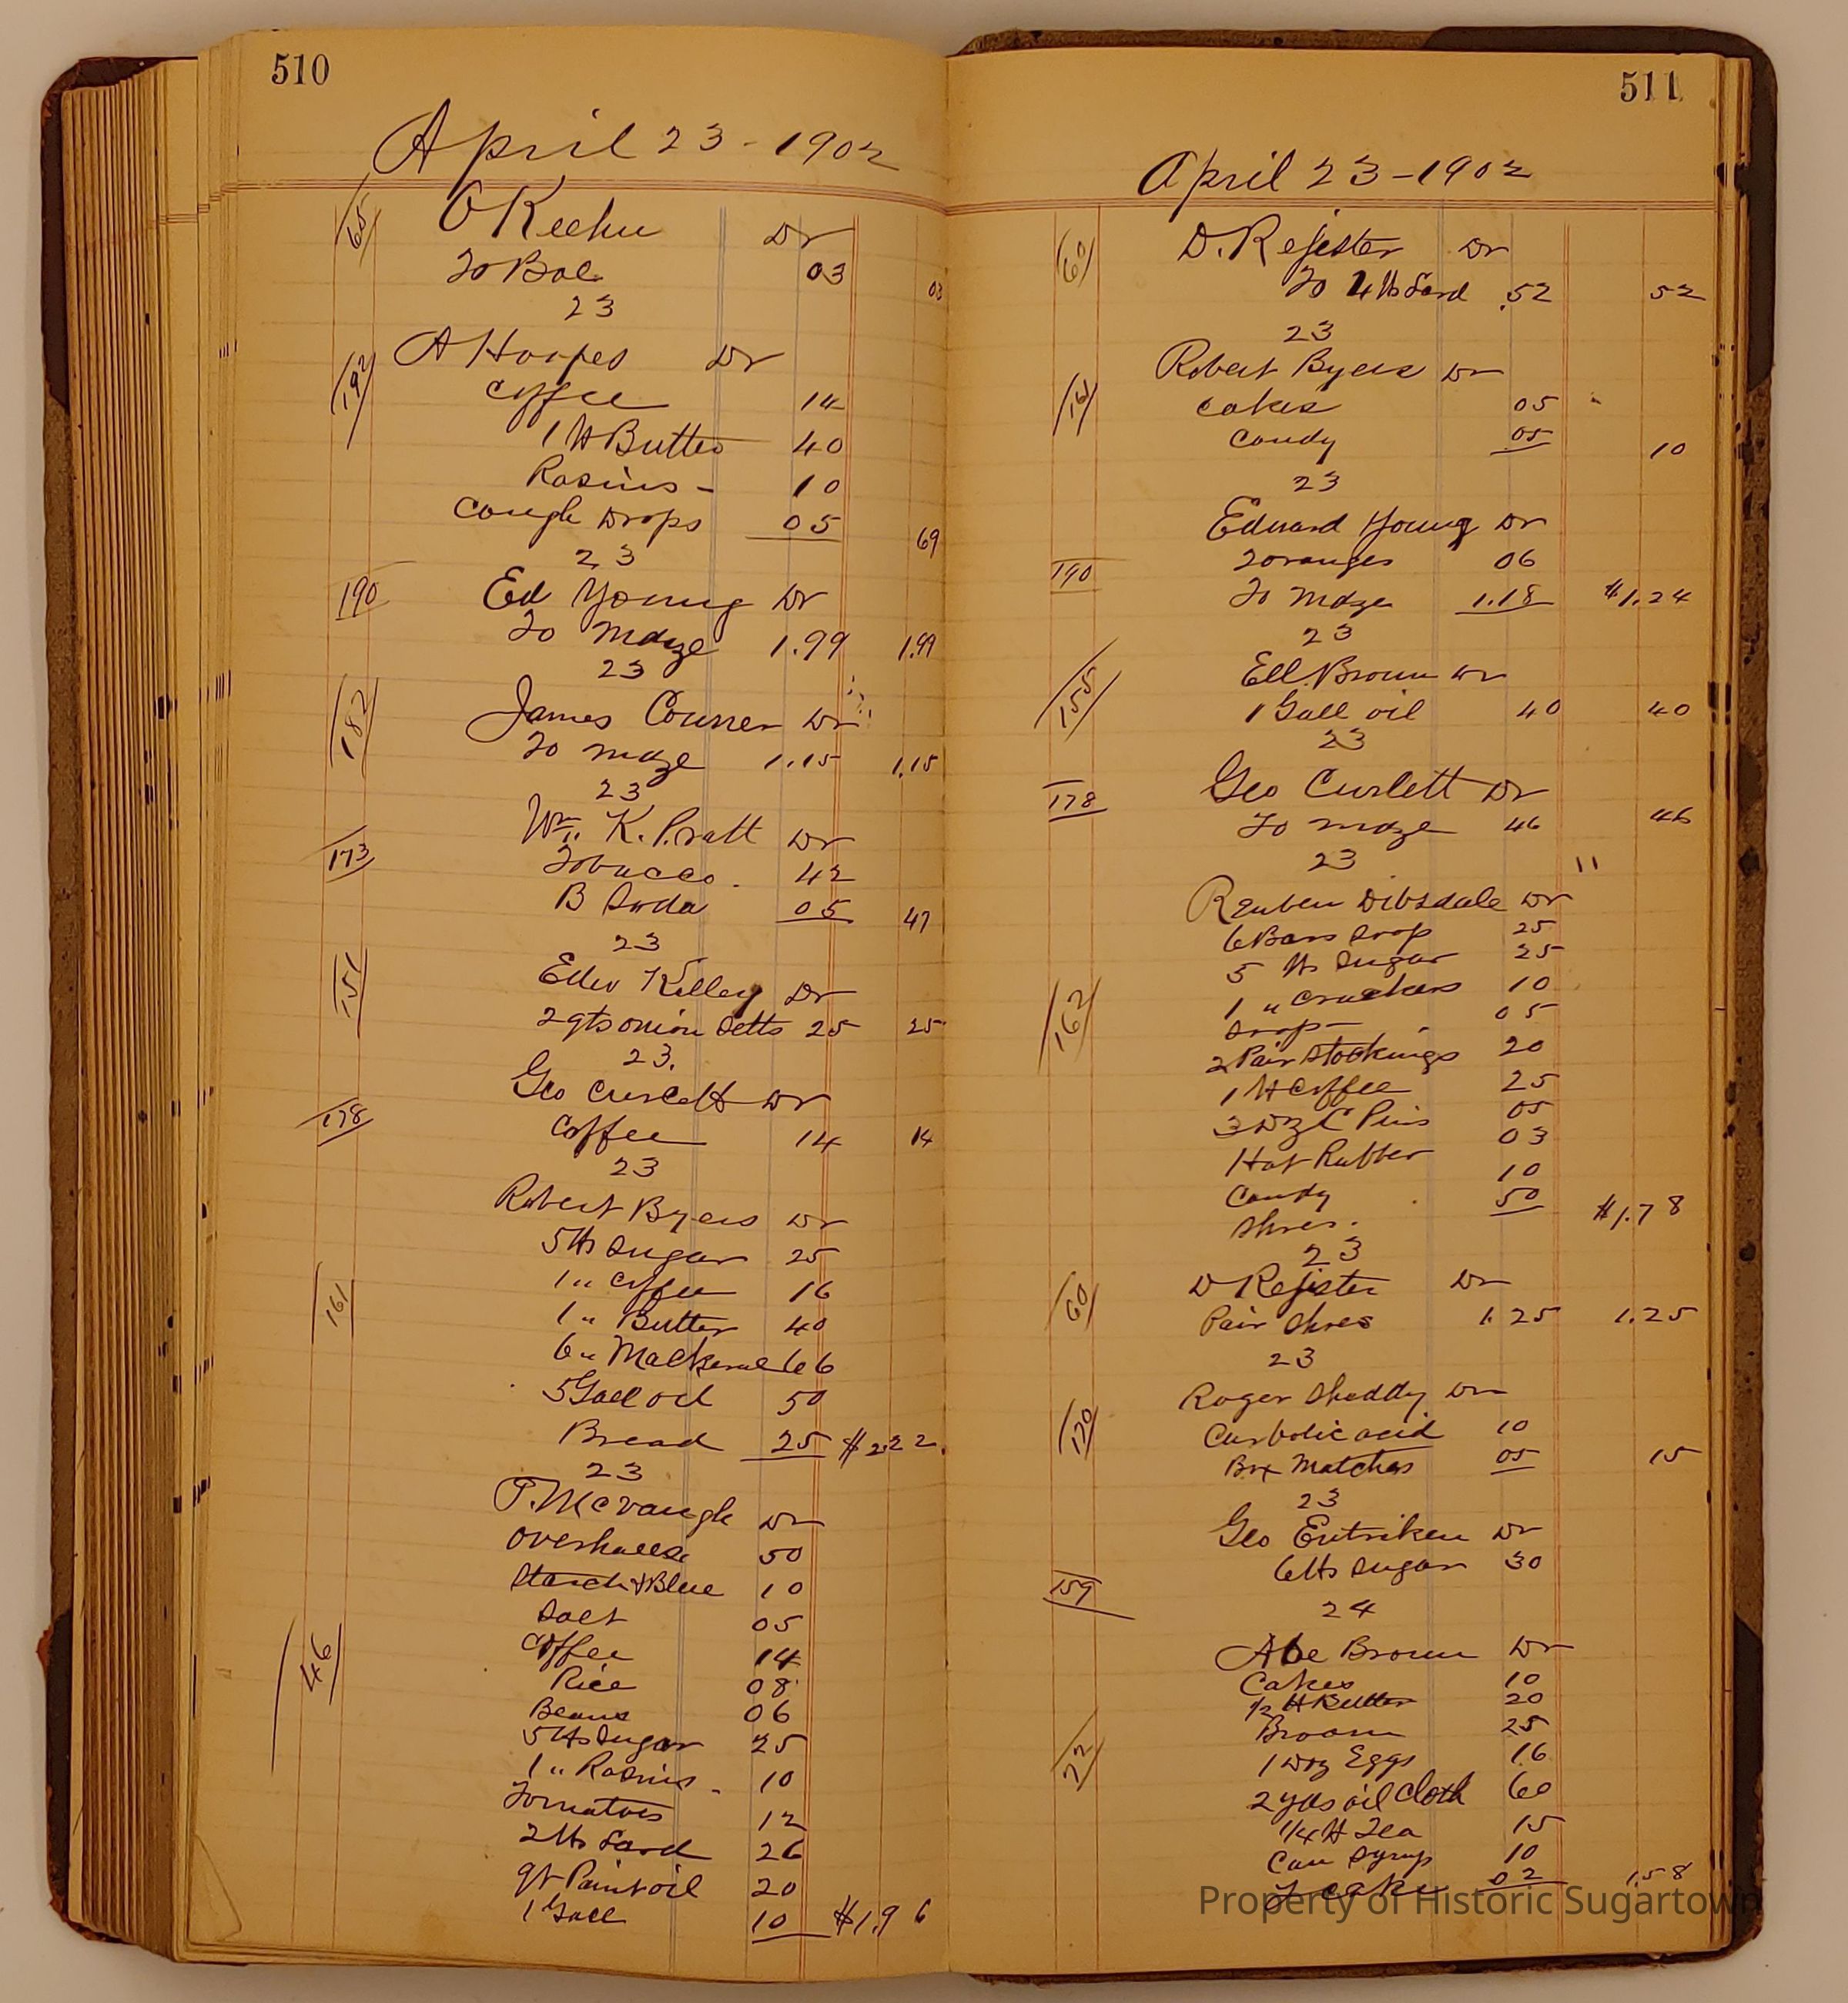 510
April 23 - 1902
65
O Keehn Dr
To Bal. 03 03
23
192
A Hoopes Dr
Coffee 14
1 lb Butter 40
Rasins - 10
Cough Drops 05 69
23
190
Ed Young Dr
To Mdze 1.99 1.99
23
182
James Conner Dr
To mdze 1.15 1.15
23
173
Wm. K. Pratt Dr
Tobacco. 42
B Soda 05 47
23
151
Kelley Dr
2 qts onion Setts 25 25
23.
178
Geo Curlett Dr
Coffee 14 14
23
161
Robert Byers Dr
5 lbs Sugar 25
1 " Coffee 16
1 " Butter 40
6 " Mackerel 66
5 Gall oil 50
Bread 25 $2.22
23
46
T. McVaugh Dr
Overhalls 50
Starch & Blue 10
Salt 05
Coffee 14
Rice 08
Beans 06
5 lbs Sugar 25
1 " Rasins - 10
Tomatoes 12
2 lbs Lard 26
qt Paint oil 20
1 Gall 10 $1.96
511
April 23 - 1902
60
D. Rejister Dr
To 4 lb Lard .52 52
23
161
Robert Byers Dr
Cakes 05
Candy 05 10
23
190
Edward Young Dr
2 oranges 06
To Mdze 1.18 $1.24
23
155
Ell. Brown Dr
1 Gall oil 40 40
23
178
Geo Curlett Dr
To mdze 46 46
23
162
Reuben Dibsdale Dr
6 Bars Soap 25
5 lbs Sugar 25
1 " Crackers 10
Soap - 05
2 Pair Stockings 20
1 lb Coffee 25
3 Dz C Pins 05
Hat Rubber 03
Candy 10
Shoes. 50 $1.78
23
60
D Rejister Dr
Pair Shoes 1.25 1.25
23
120
Roger Sheddy Dr
Carbolic acid 10
Box Matches 05 15
23
159
Geo Entriken Dr
6 lbs Sugar 30
24
22
Abe Brown Dr
Cakes 10
1/2 lb Butter 20
Broom 25
1 Doz Eggs 16
2 yds oil Cloth 60
1/4 lb Tea 15
Can Syrup 10
Y cake 02 1.58
Property of Historic Sugartown